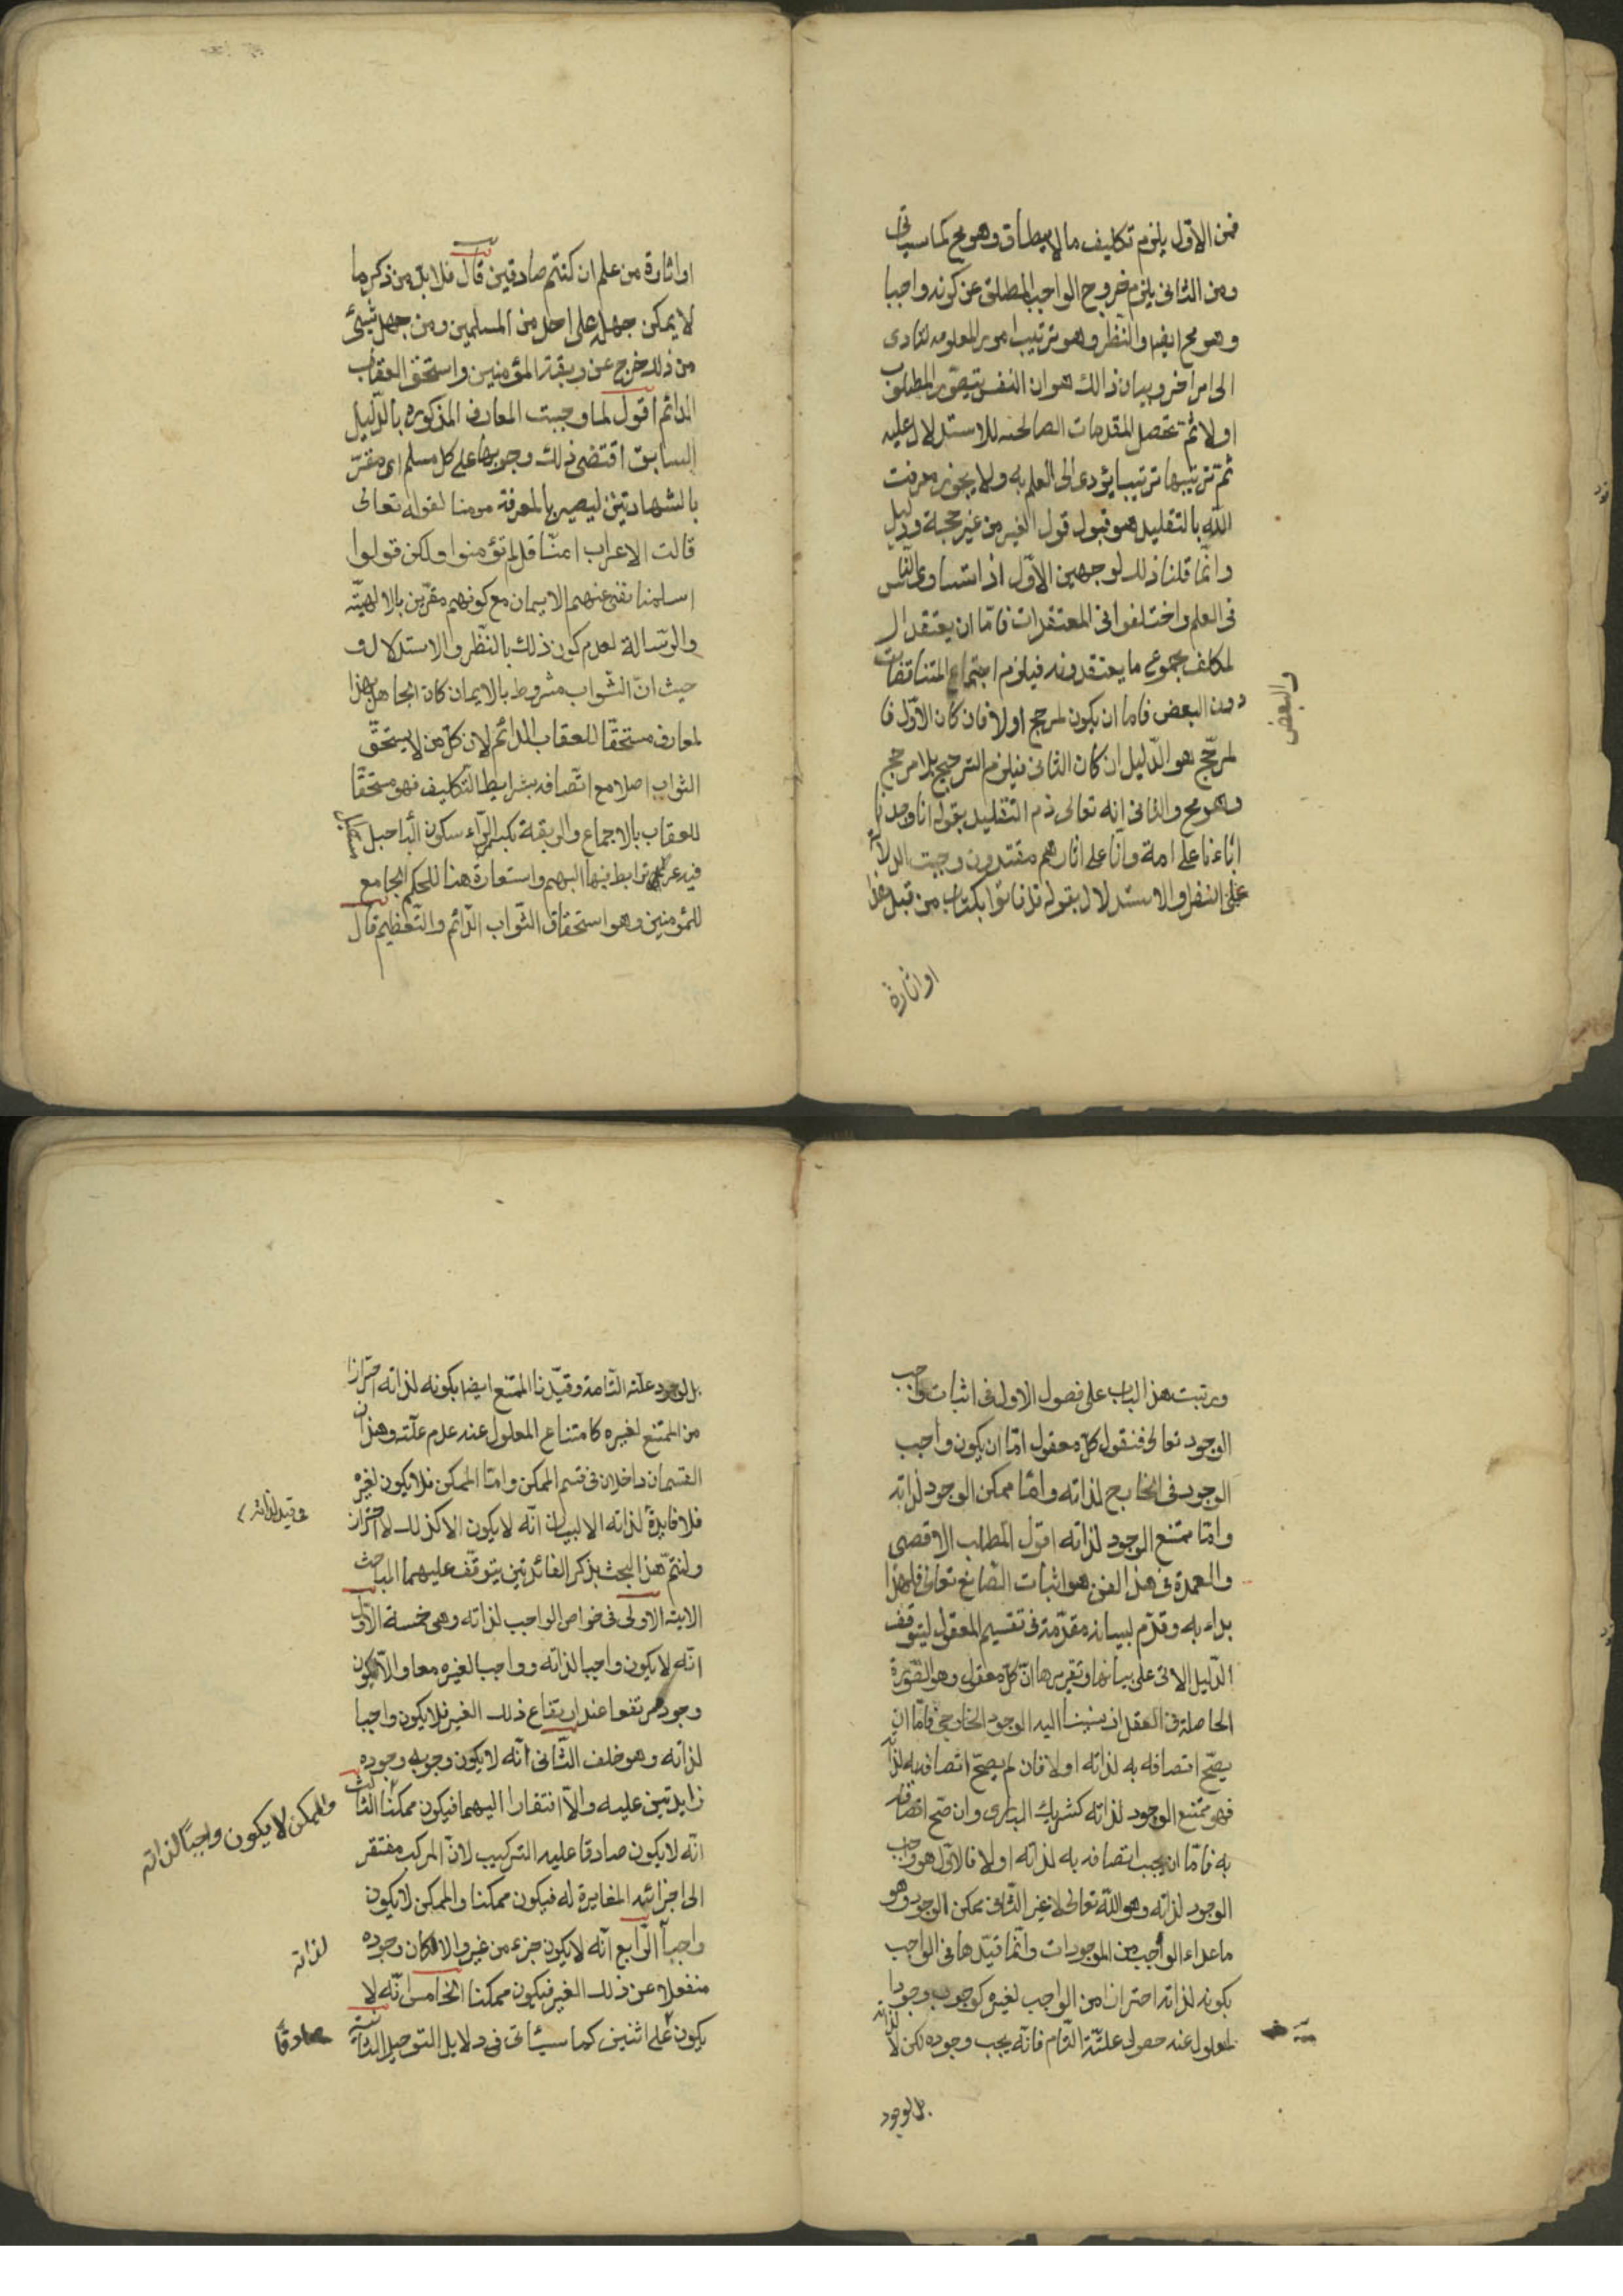 فمن الاول يلزم تكليف ما لا يطاق وهو مح كما سيأتى
ومن الثانى يلزم خروج الواجب المطلق عن كونه واجبا
وهو مح ايضا والنظر وهو ترتيب امور المعلومه لتادى
الى امر اخر وبيان ذالك هو ان النفس يتصور المطلوب
اولا ثم تحصل المقدمات الصالحه للاستدلال عليه
ثم ترتيبها ترتيبا يؤدى الى العلم به ولا يجوز معرفت
الله بالتقليد هو قبول قول الغير من غير حجة ودليل
وانما قلنا ذلك لوجهين الاول اذا تساوى الناس
فى العلم واختلفوا فى المعتقدات فاما ان يعتقد ال
لمكلف بمجموع ما يعتقدونه فيلزم اجتماع المتناقضات
والبعض
دون البعض فاما ان يكون لمرجح اولا فان كان الاول فا
لمرجح هو الدليل ان كان الثانى فيلزم الترجيح بلا مرجح
وهو مح والثانى انه تعالى ذم التقليد بقوله انا وجدنا
اباءنا على امة وانا على اثارهم مقتدون وجبت الدلا
على النظر والاستدلال بقوله فاتوا بكتاب من قبل هذا
او اثارة
او اثارة من علم ان كنتم صادقين قال فلا بد من ذكر ما
لا يمكن جهله على احد من المسلمين ومن جهل شيئ
من ذلك خرج عن ربقة المؤمنين واستحق العقاب
الدائم اقول لما وجبت المعارف المذكوره بالدليل
السابق اقتضى ذلك وجوبها على كل مسلم اى مقر
بالشهادتين ليصير بالمعرفة مومنا لقوله تعالى
قالت الاعراب امنا قل لم تؤمنوا ولكن قولوا
اسلمنا نفى عنهم الايمان مع كونهم مقرين بالالهيته
والرسالة لعدم كون ذلك بالنظر والاستدلال و
حيث ان الثواب مشروط بالايمان كان الجاهل بهذا
لمعارف مستحقا للعقاب الدائم لان كل من لا يستحق
الثواب اصلا مع اتصافه بشرايط التكليف فهو مستحقا
للعقاب بالاجماع والربقة بكسر الراء سكون الباء حبل
فيه عرى ترابط فيها البهم واستعارة هنا للحكم الجامع
للمؤمنين وهو استحقاق الثواب الدائم والتعظيم قال
ورتبت هذا الباب على فصول الاول فى اثبات واجب
الوجود تعالى فنقول كل معقول اما ان يكون واجب
الوجود فى الخارج لذاته واما ممكن الوجود لذاته
واما ممتنع الوجود لذاته اقول المطلب الاقصى
والعمدة فى هذا الفن هو اثبات الصانع تعالى فلهذا
بداء به وقدم لبيانه مقدمة فى تقسيم المعقول ليتوقف
الدليل الاتى على بيانها وتقريرها ان كل معقول وهو الصورة
الحاصلة فى العقل اذ نسبنا اليه الوجود الخارجى فاما ان
يصح اتصافه به لذاته اولا فان لم يصح اتصافه به لذا
فهو ممتنع الوجود لذاته كشريك البارى وان صح اتصافه
به فاما ان يجب اتصافه به لذاته اولا فالاول هو واجب
الوجود لذاته وهو الله تعالى لا غير الثانى ممكن الوجود وهو
ما عداء الواجب من الموجودات وانما قيدها فى الواجب
بكونه لذاته احترازا من الواجب لغيره كوجوب وجود ا
لمعلول عند حصول علته التام فانه يجب وجوده لكن لا لذاته
بل لوجود
بل لوجود علته التامة وقيدنا الممتنع ايضا بكونه لذاته احترازا
من الممتنع لغيره كامتناع المعلول عند عدم علته وهذان
القسمان داخلان فى قسم الممكن واما الممكن فلا يكون لغيره
فى قيد لذاته
فلا فايدة لذاته الا لبيان انه لا يكون الا كذلك لا احتراز
ولنتم هذا البحث بذكر الفائدتين يتوقف عليهما المباحث
الاتيه الاولى فى خواص الواجب لذاته وهى خمسة الاول
انه لا يكون واجبا لذاته وواجبا لغيره معا والا لكان
وجوده مرتفعا عند ارتفاع ذلك الغير فلا يكون واجبا
لذاته وهو خلف الثانى انه لا يكون وجوبه وجوده
زايدتين عليه والا افتقارا اليهما فيكون ممكنا الثالث
والممكن لا يكون واجبا لذاته
انه لا يكون صادقا عليه التركيب لان المركب مفتقر
الى اجزائه المغايرة له فيكون ممكنا والممكن لا يكون
واجبا الرابع انه لا يكون جزء من غيره والا لكان وجوده
لذاته
منفعلا عن ذلك الغير فيكون ممكنا الخامس انه لا
يكون على اثنين كما سيئاتى فى دلايل التوحيد الثانيه
صادقا